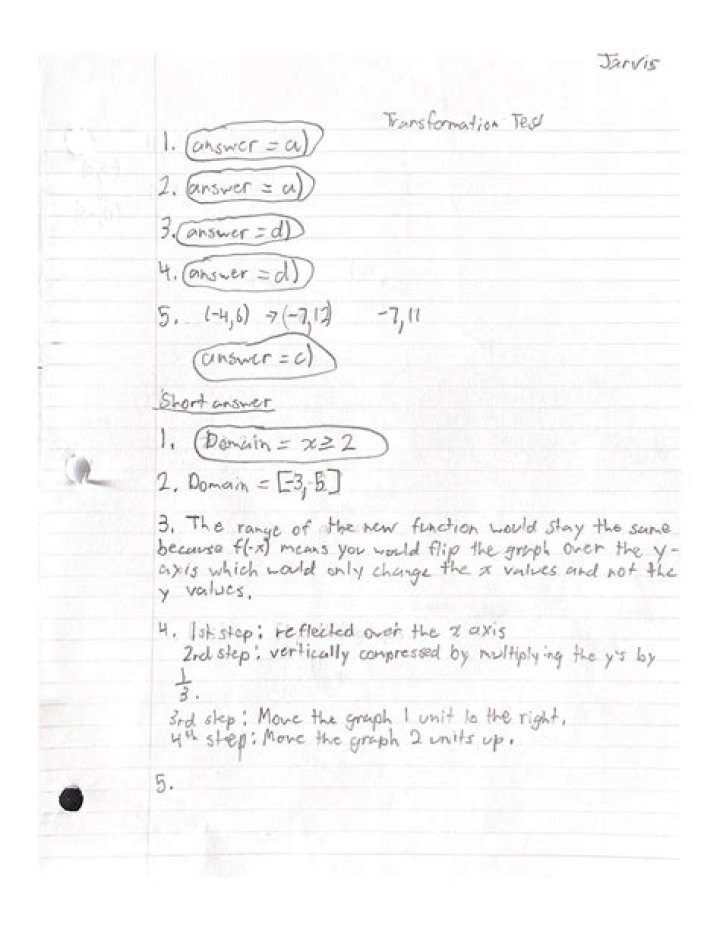 Jarvis
Transformation Test
1. answer = a)
2. answer = a)
3. answer = d)
4. answer = d)
5. (-4,6) → (-7,12) -7,11
answer = c)
Short answer
1. Domain = x ≥ 2
2. Domain = [-3,-5]
3. The range of the new function would stay the same
because f(-x) means you would flip the graph over the y-
axis which would only change the x values and not the
y values.
4. 1st step: reflected over the x axis
2nd step: vertically compressed by multiplying the y's by
1/3.
3rd step: Move the graph 1 unit to the right.
4th step: Move the graph 2 units up.
5.